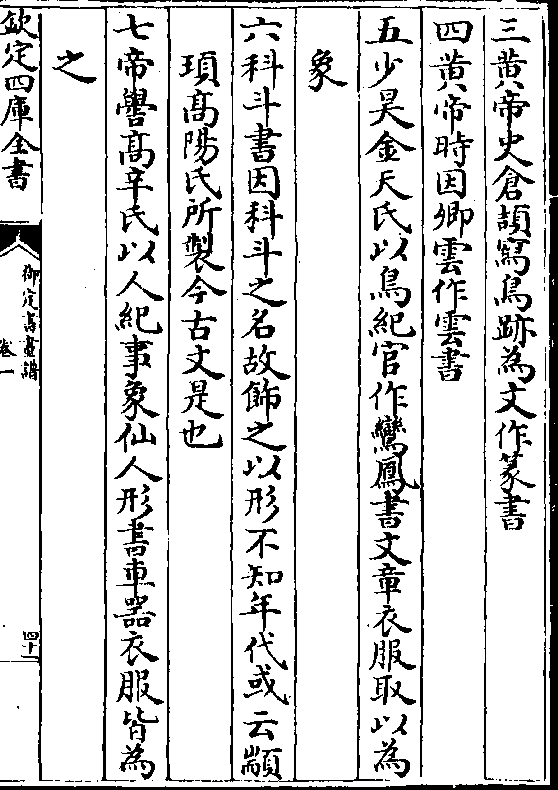 三黄帝史倉頡寫鳥跡為文作篆書
四黄帝時因卿雲作雲書
五少昊金天氏以鳥紀官作鸞鳳書文章衣服取以為
象
六科斗書因科斗之名故飾之以形不知年代或云顓
頊髙陽氏所製今古文是也
七帝嚳髙辛氏以人紀事象仙人形書車器衣服皆為
之
欽定四庫全書
御定書畫譜
卷一
四十一